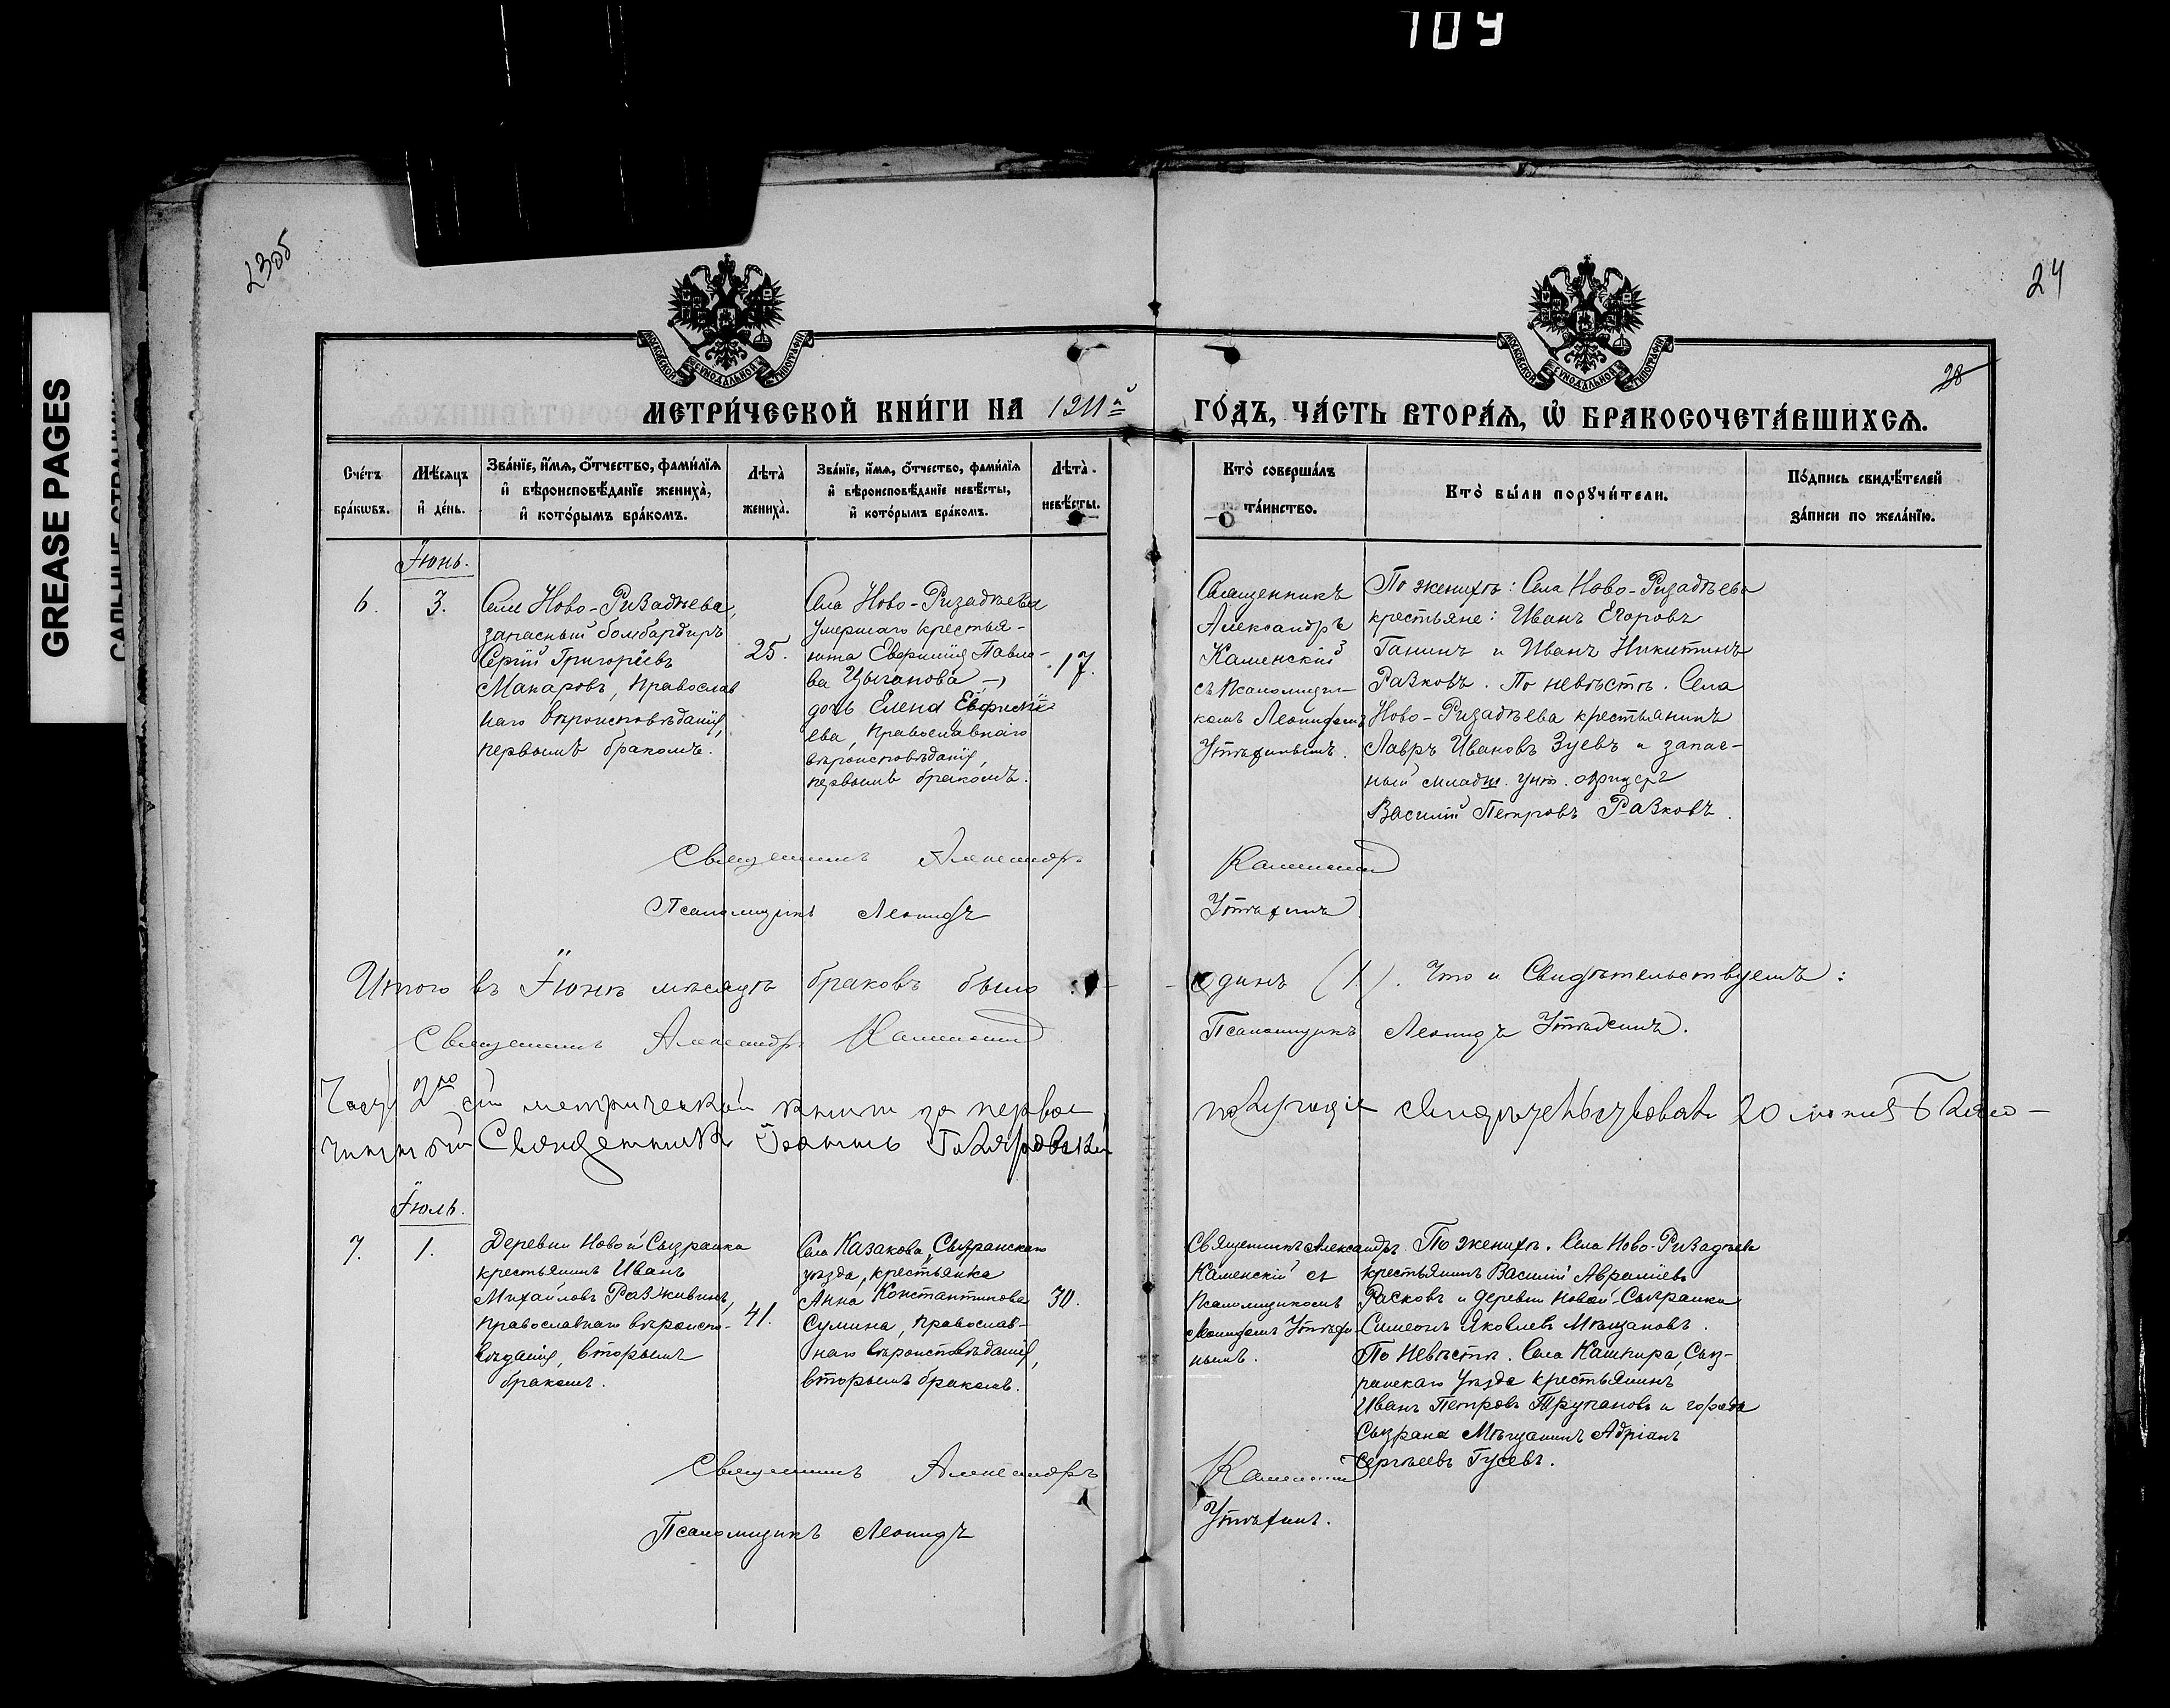 109
GREASE PAGES
230б
24
28
МОСКОВСКОЙ СѴНОДАЛЬНОЙ ТИПОГРАФІИ
МОСКОВСКОЙ СѴНОДАЛЬНОЙ ТИПОГРАФІИ
МЕТРИ́ЧЕСКОЙ КНИ́ГИ НА 1911й ГО́ДЪ, ЧА́СТЬ ВТОРА́Я, Ѡ БРАКОСОЧЕТА́ВШИХСѦ.
Сче́тъ
бра́кѡвъ.
Мѣ́сяцъ
и҆ де́нь.
Зва́нїе, и҆́мя, о҆́тчество, фами́лїя
и҆ вѣроисповѣ́данїе жениха̀,
и҆ кото́рымъ бра́комъ.
Лѣта̀
жениха̀.
Зва́нїе, и҆́мя, о҆́тчество, фами́лїя
и҆ вѣроисповѣ́данїе невѣ́сты,
и҆ кото́рымъ бра́комъ.
Лѣта̀
невѣ́сты.
Кто̀ соверша́лъ
та́инство.
Кто̀ бы́ли порꙋчи́тели.
По́дпись свидѣ́телей
за́писи по жела́нїю.
Іюнь.
6.
3.
Села Ново-Ризадѣева,
запасный бомбардиръ
Сергій Григоріевъ
Макаровъ, православ
наго вѣроисповѣданія,
первымъ бракомъ.
25.
Села Ново-Ризадѣева
умершаго крестья-
нина Евфимія Павло-
ва Цыганова –,
дочь Елена Евфимі
ева, православнаго
вѣроисповѣданія,
первымъ бракомъ.
17.
Священникъ
Александръ
Каменскій
съ псаломщи-
комъ Леонидомъ
Утѣхинымъ.
По женихѣ: Села Ново-Ризадѣева
крестьяне: Иванъ Егоровъ
Ганинъ и Иванъ Никитинъ
Разковъ. По невѣстѣ. Села
Ново-Ризадѣева крестьянинъ
Лавръ Ивановъ Зуевъ и запас-
ный младш. унт. офицеръ
Василій Петровъ Разковъ.
Священникъ Александръ Каменскій
Псаломщикъ Леонидъ Утѣхинъ
Итого въ Іюнѣ мѣсяцѣ браковъ было один (1). Что и свидѣтельствуемъ:
Священникъ Александръ Каменскій Псаломщикъ Леонидъ Утѣхинъ.
Часть 2ую сей метрической книги за первое полугодіе свидѣтельствовалъ 20 іюля Благо-
чинный Священникъ Іоаннъ
Іюль.
7.
1.
Деревни Новой Сызранки
крестьянинъ Иванъ
Михайловъ Разживинъ,
православнаго вѣроиспо-
вѣданія, вторымъ
бракомъ.
41.
Села Казакова, Сызранскаго
уѣзда, крестьянка
Анна Константинова
Сумина, православ-
наго вѣроисповѣданія,
вторымъ бракомъ.
30.
Священникъ Александръ
Каменскій съ
псаломщикомъ
Леонидомъ Утѣхи-
нымъ.
По женихѣ. Села Ново-Ризадѣева
крестьянинъ Василій Авраміевъ
Расковъ и деревни Новой-Сызранки
Симеонъ Яковлевъ Мѣщановъ.
По невѣстѣ. Села Кашпира, Сыз-
ранскаго уѣзда крестьянинъ
Иванъ Петровъ Трупановъ и города
Сызрана Мѣщанинъ Адріанъ
Сергѣевъ Гусевъ.
Священникъ Александръ Каменскій
Псаломщикъ Леонидъ Утѣхинъ.